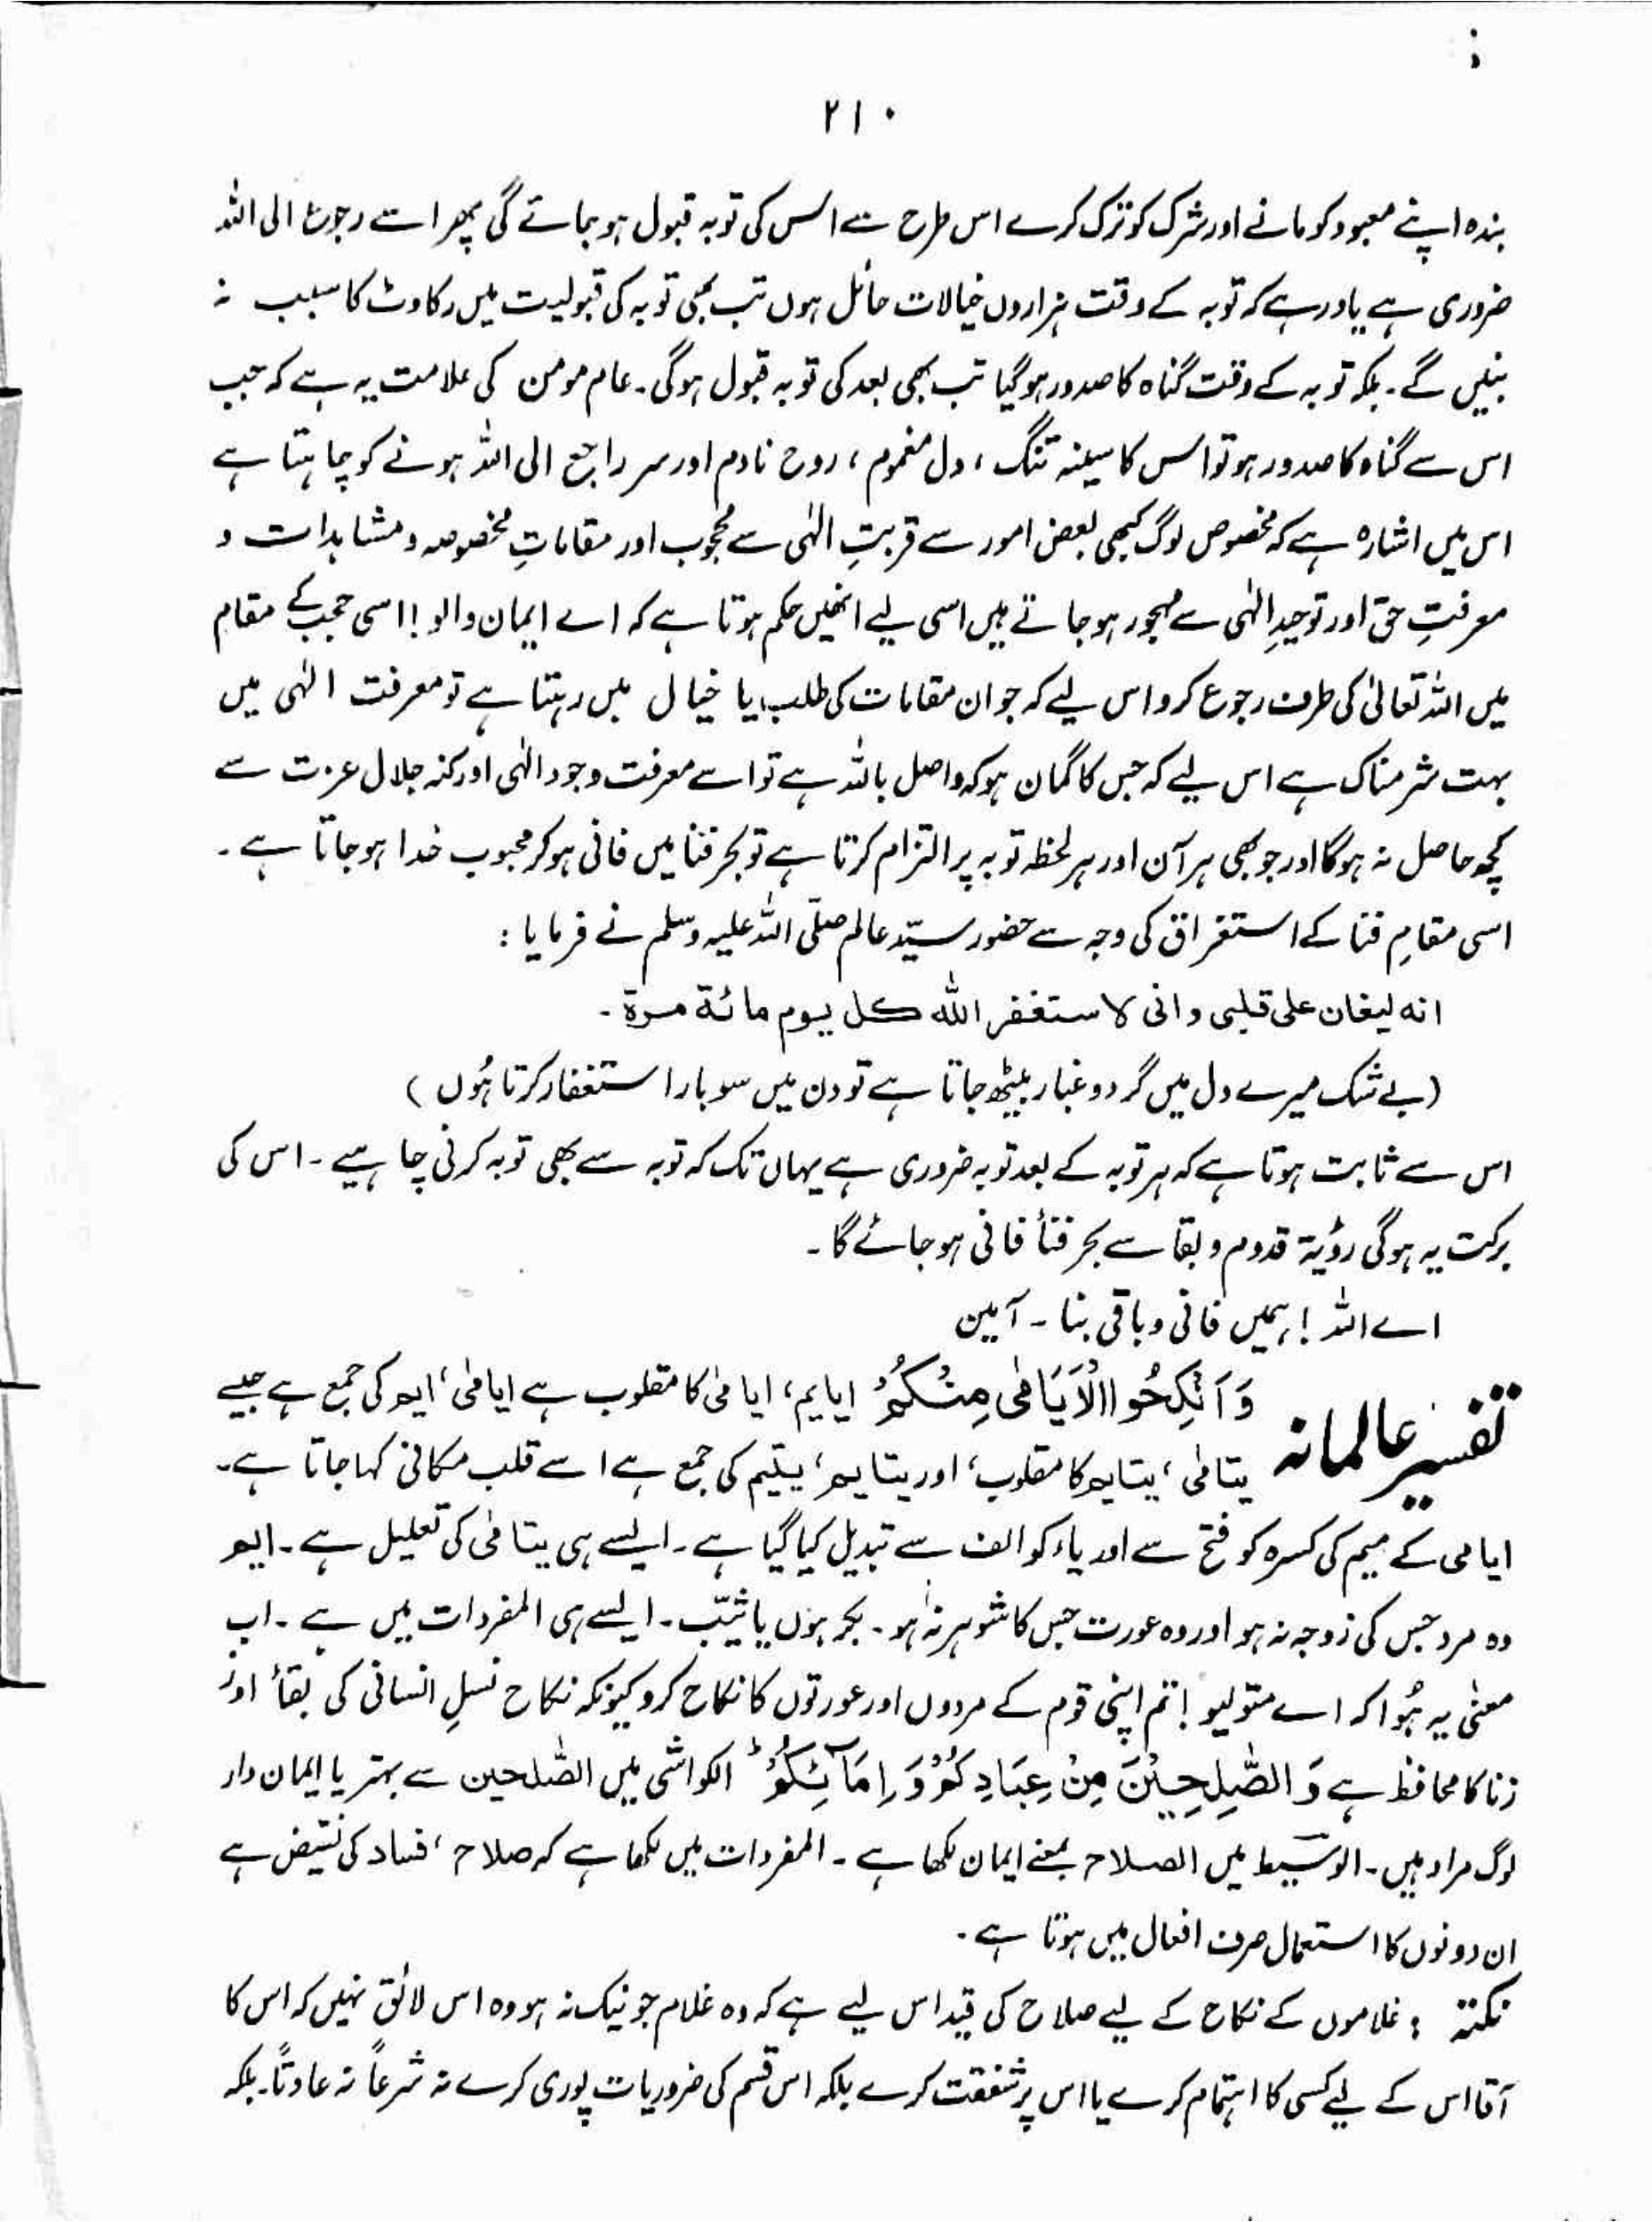 ۲۱۰
بندہ اپنے معبود کو مانے اور شرک کو ترک کرے اس طرح سے اس کی توبہ قبول ہو جائے گی پھر اسے رجوع الی اللہ
ضروری ہے یاد رہے کہ توبہ کے وقت ہزاروں خیالات حائل ہوں تب بھی توبہ کی قبولیت میں رکاوٹ کا سبب نہ
بنیں گے۔ بلکہ توبہ کے وقت گناہ کا صدور ہو گیا تب بھی بعد کی توبہ قبول ہوگی۔ عام مومن کی علامت یہ ہے کہ جب
اس سے گناہ کا صدور ہو تو اس کا سینہ تنگ، دل مغموم، روح نادم اور سر راجع الی اللہ ہونے کو چاہتا ہے
اس میں اشارہ ہے کہ مخصوص لوگ کبھی بعض امور سے قربتِ الٰہی سے محجوب اور مقاماتِ مخصوصہ و مشاہدات و
معرفتِ حق اور توحیدِ الٰہی سے مہجور ہو جاتے ہیں اسی لیے انھیں حکم ہوتا ہے کہ اے ایمان والو! اسی حجب کے مقام
میں اللہ تعالیٰ کی طرف رجوع کرو اس لیے کہ جو ان مقامات کی طلب یا خیال میں رہتا ہے تو معرفت الٰہی میں
بہت شرمناک ہے اس لیے کہ جس کا گمان ہو کہ واصل باللہ ہے تو اسے معرفت وجود الٰہی اور کنہ جلال عزت سے
کچھ حاصل نہ ہوگا اور جو بھی ہر آن اور ہر لحظہ توبہ پر التزام کرتا ہے تو بحر فنا میں فانی ہو کر محبوب خدا ہو جاتا ہے۔
اسی مقامِ فنا کے استغراق کی وجہ سے حضور سیّد عالم صلّی اللہ علیہ وسلم نے فرمایا :
انه ليغان على قلبى وانى لاستغفر الله كل يوم مائة مرة۔
(بے شک میرے دل میں گرد و غبار بیٹھ جاتا ہے تو دن میں سو بار استغفار کرتا ہُوں)
اس سے ثابت ہوتا ہے کہ ہر توبہ کے بعد توبہ ضروری ہے یہاں تک کہ توبہ سے بھی توبہ کرنی چاہیے۔ اس کی
برکت یہ ہوگی رؤیۃ قدوم و بقا سے بحر فنأ فانی ہو جائے گا۔
اے اللہ! ہمیں فانی و باقی بنا۔ آمین
تفسیر عالمانہ وَاَنْكِحُوا الْاَيَامٰى مِنْكُمْ ایایم، ایامیٰ کا مقلوب ہے ایامیٰ، ایم کی جمع ہے جیسے
یتامیٰ، یتایم کا مقلوب، اور یتایم، یتیم کی جمع ہے اسے قلب مکانی کہا جاتا ہے۔
ایامی کے میم کی کسرہ کو فتح سے اور یاء کو الف سے تبدیل کیا گیا ہے۔ ایسے ہی یتامیٰ کی تعلیل ہے۔ ایم
وہ مرد جس کی زوجہ نہ ہو اور وہ عورت جس کا شوہر نہ ہو۔ بکر ہوں یا ثیّب۔ ایسے ہی المفردات میں ہے۔ اب
معنیٰ یہ ہُوا کہ اے متولیو! تم اپنی قوم کے مردوں اور عورتوں کا نکاح کرو کیونکہ نکاح نسلِ انسانی کی بقأ اور
زنا کا محافظ ہے وَالصّٰلِحِيْنَ مِنْ عِبَادِكُمْ وَاِمَآئِكُمْ الکواشی میں الصّٰلحین سے بہتر یا ایمان دار
لوگ مراد ہیں۔ الوسیط میں الصلاح بمعنے ایمان لکھا ہے۔ المفردات میں لکھا ہے کہ صلاح، فساد کی نقیض ہے
ان دونوں کا استعمال صرف افعال میں ہوتا ہے۔
نکتہ : غلاموں کے نکاح کے لیے صلاح کی قید اس لیے ہے کہ وہ غلام جو نیک نہ ہو وہ اس لائق نہیں کہ اس کا
آقا اس کے لیے کسی کا اہتمام کرے یا اس پر شفقت کرے بلکہ اس قسم کی ضروریات پوری کرے نہ شرعاً نہ عادتاً۔ بلکہ